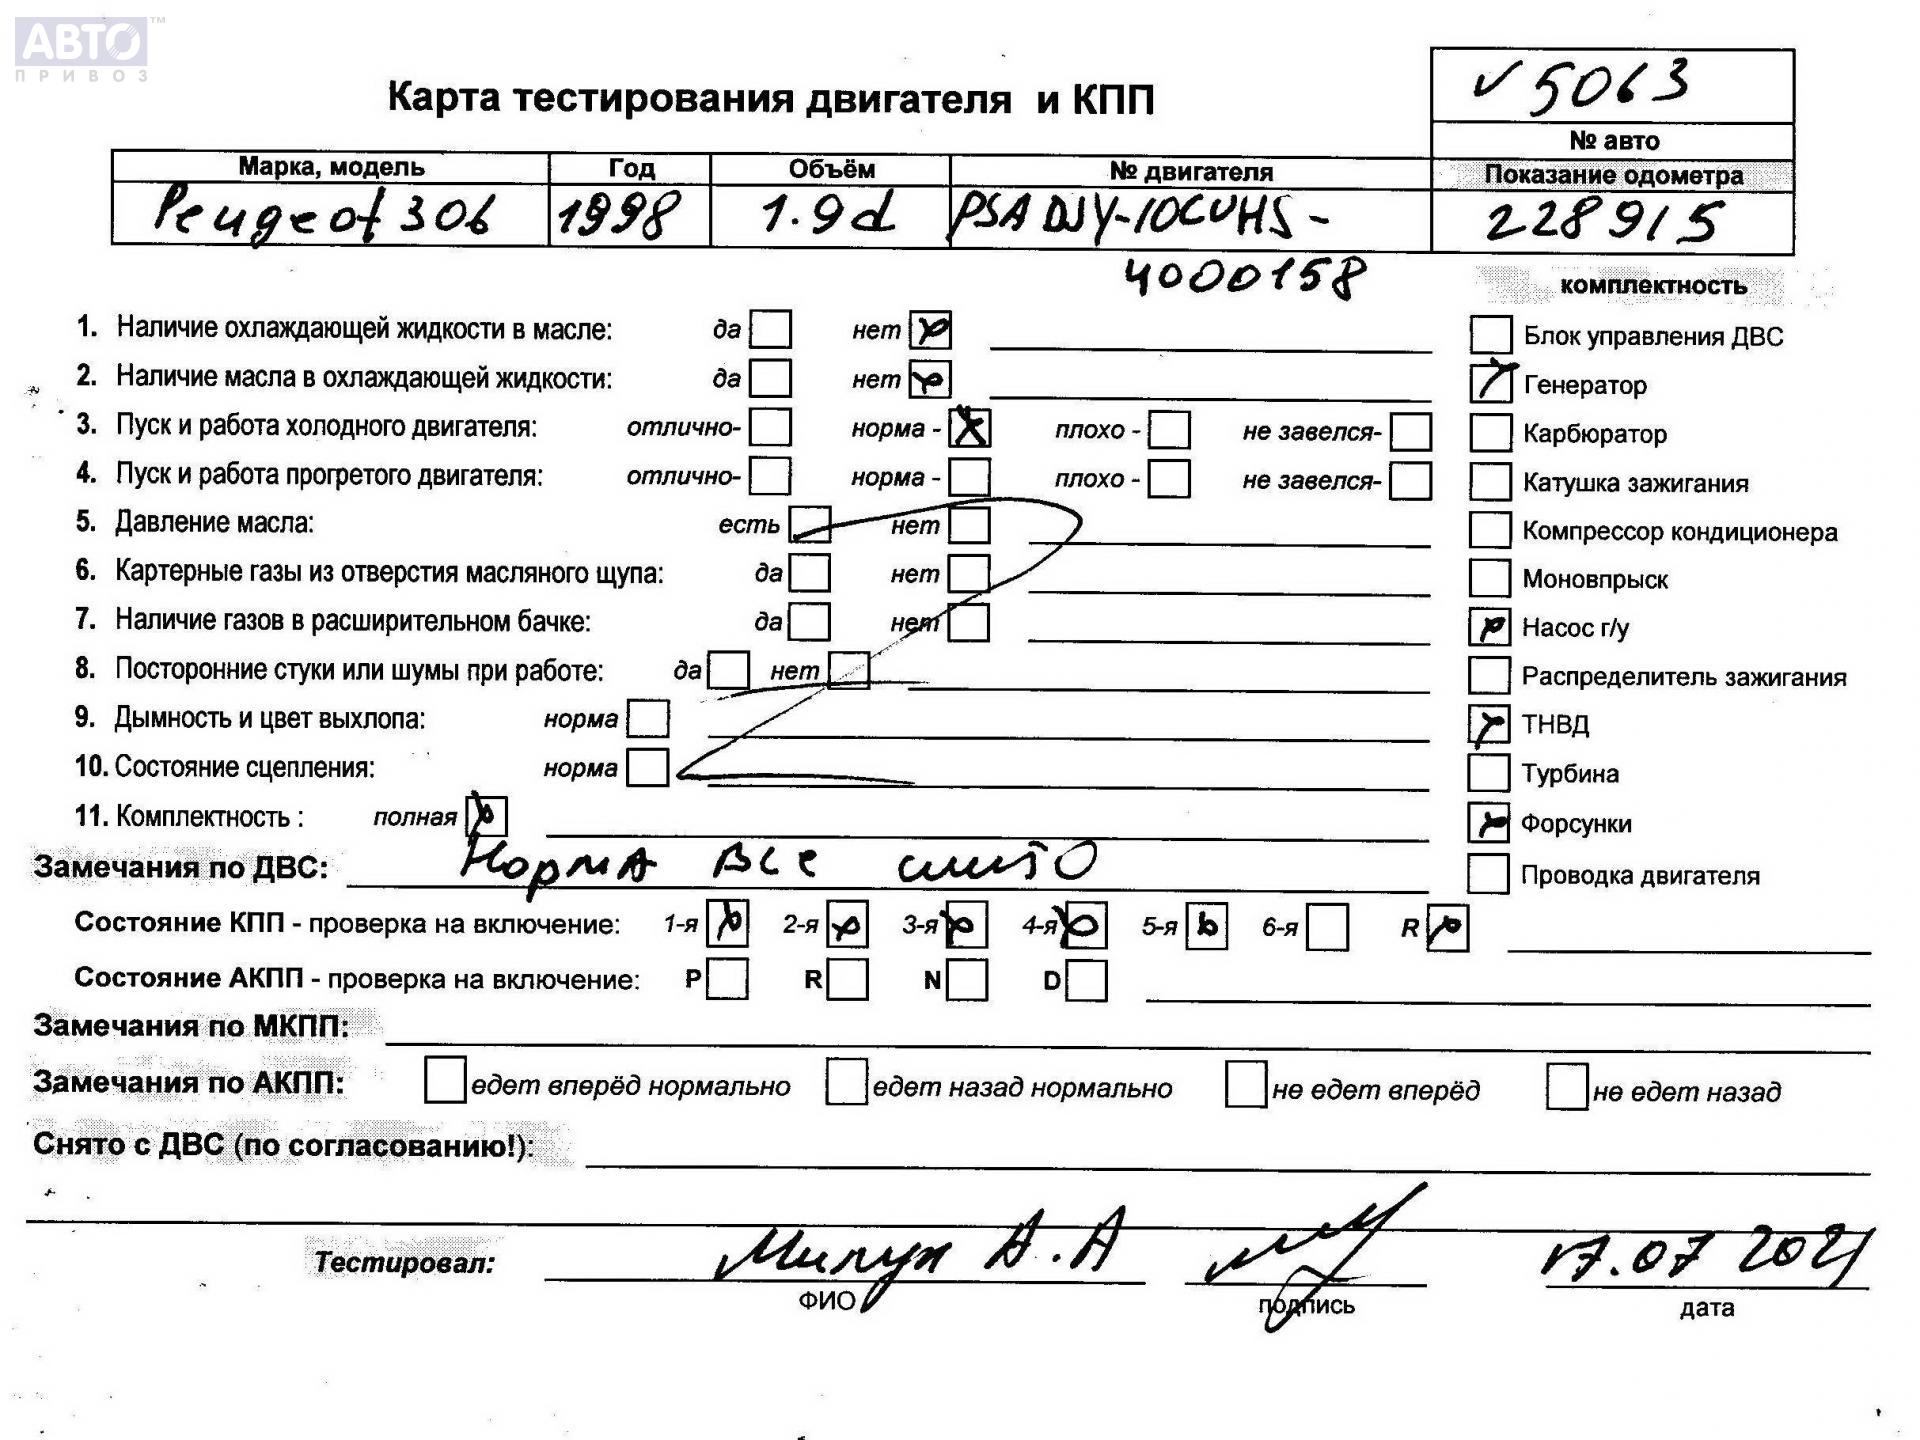 АВТО™
ПРИВОЗ
Карта тестирования двигателя и КПП
V5063
№ авто
Марка, модель Год Объём № двигателя Показание одометра
Peugeot 306 1998 1.9d PSA DJY-10CUHS- 228915
4000158
комплектность
1. Наличие охлаждающей жидкости в масле: да нет
Блок управления ДВС
2. Наличие масла в охлаждающей жидкости: да нет
Генератор
3. Пуск и работа холодного двигателя: отлично- норма - плохо - не завелся-
Карбюратор
4. Пуск и работа прогретого двигателя: отлично- норма - плохо - не завелся-
Катушка зажигания
5. Давление масла: есть нет
Компрессор кондиционера
6. Картерные газы из отверстия масляного щупа: да нет
Моновпрыск
7. Наличие газов в расширительном бачке: да нет
Насос г/у
8. Посторонние стуки или шумы при работе: да нет
Распределитель зажигания
9. Дымность и цвет выхлопа: норма
ТНВД
10. Состояние сцепления: норма
Турбина
11. Комплектность : полная
Форсунки
Замечания по ДВС: Норма все
Проводка двигателя
Состояние КПП - проверка на включение: 1-я 2-я 3-я 4-я 5-я 6-я R
Состояние АКПП - проверка на включение: P R N D
Замечания по МКПП:
Замечания по АКПП: едет вперёд нормально едет назад нормально не едет вперёд не едет назад
Снято с ДВС (по согласованию!):
Тестировал: Милух А.А 17.07 2021
ФИО подпись дата